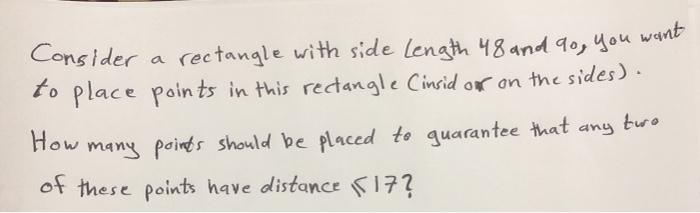 Consider a rectangle with side length 48 and 90, you want
to place points in this rectangle (insid or on the sides).
How many points should be placed to guarantee that any two
of these points have distance ≤17?